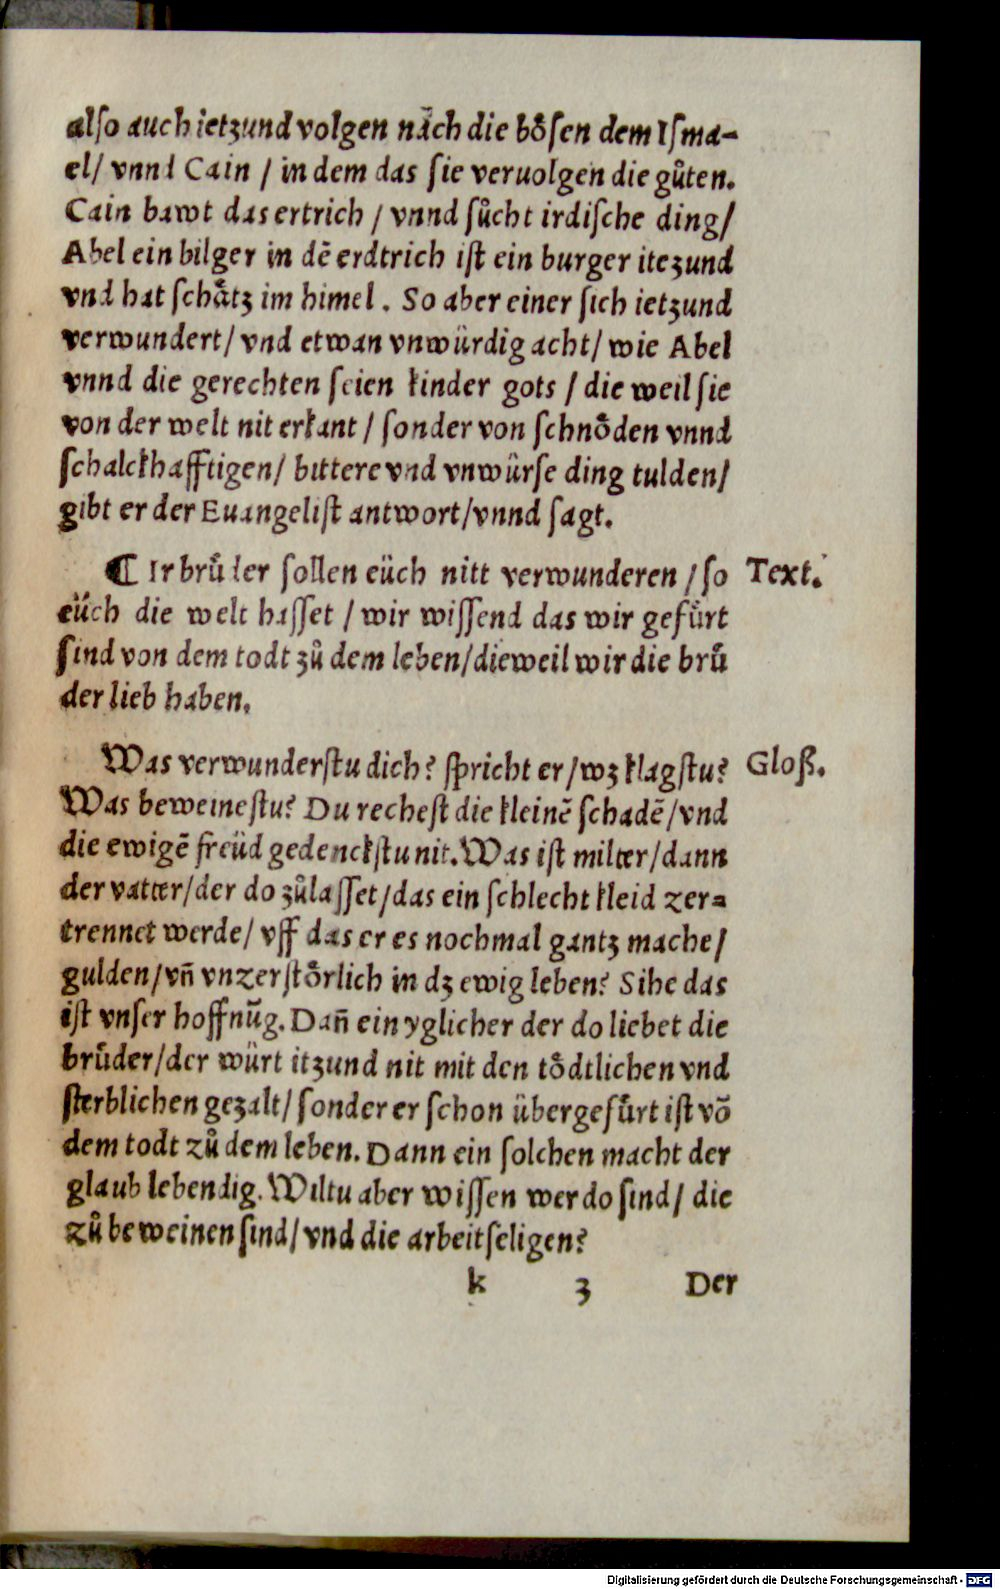 alſo auch ietzund volgen nach die boͤſen dem Iſma-
el/ vnnd Cain / in dem das ſie veruolgen die guͦten.
Cain bawt das ertrich / vnnd ſuͦcht irdiſche ding/
Abel ein bilger in dē erdtrich iſt ein burger itezund
vnd hat ſchaͤtz im himel . So aber einer ſich ietzund
verwundert/ vnd etwan vnwürdig acht/ wie Abel
vnnd die gerechten ſeien kinder gots / die weil ſie
von der welt nit erkant / ſonder von ſchnoͤden vnnd
ſchalckhafftigen/ bittere vnd vnwürſe ding tulden/
gibt er der Euangeliſt antwort/ vnnd ſagt.
¶ Ir bruͤder ſollen eüch nitt verwunderen / ſo Text.
eüch die welt haſſet / wir wiſſend das wir gefuͤrt
ſind von dem todt zuͦ dem leben/ dieweil wir die bruͤ
der lieb haben.
Was verwunderſtu dich? ſpricht er/ wz klagſtu? Gloß.
Was beweineſtu? Du recheſt die kleinē ſchadē/ vnd
die ewigē freüd gedenckſtu nit. Was iſt milter/ dann
der vatter/ der do zuͦlaſſet/ das ein ſchlecht kleid zer⸗
trennet werde/ vff das er es nochmal gantz mache/
gulden/ vn̄ vnzerſtoͤrlich in dz ewig leben? Sihe das
iſt vnſer hoffnūg. Dan̄ ein yglicher der do liebet die
bruͤder/ der würt itzund nit mit den toͤdtlichen vnd
ſterblichen gezalt/ ſonder er ſchon übergefuͤrt iſt vō
dem todt zuͦ dem leben. Dann ein ſolchen macht der
glaub lebendig. Wiltu aber wiſſen wer do ſind/ die
zuͦ beweinen ſind/ vnd die arbeitſeligen?
k 3 Der
Digitalisierung gefördert durch die Deutsche Forschungsgemeinschaft - DFG